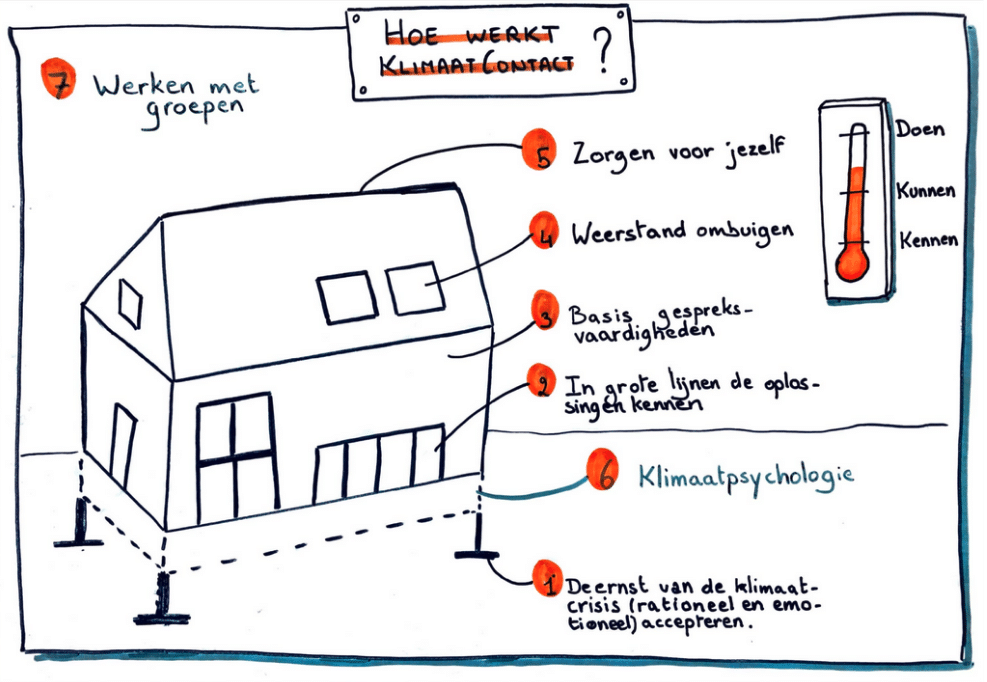 HOE WERKT
KLIMAATCONTACT ?
7 Werken met
groepen
5 Zorgen voor jezelf
4 Weerstand ombuigen
3 Basis gespreks-
vaardigheden
2 In grote lijnen de oplos-
singen kennen
6 Klimaatpsychologie
1 De ernst van de klimaat-
crisis (rationeel en emo-
tioneel) accepteren.
Doen
Kunnen
Kennen